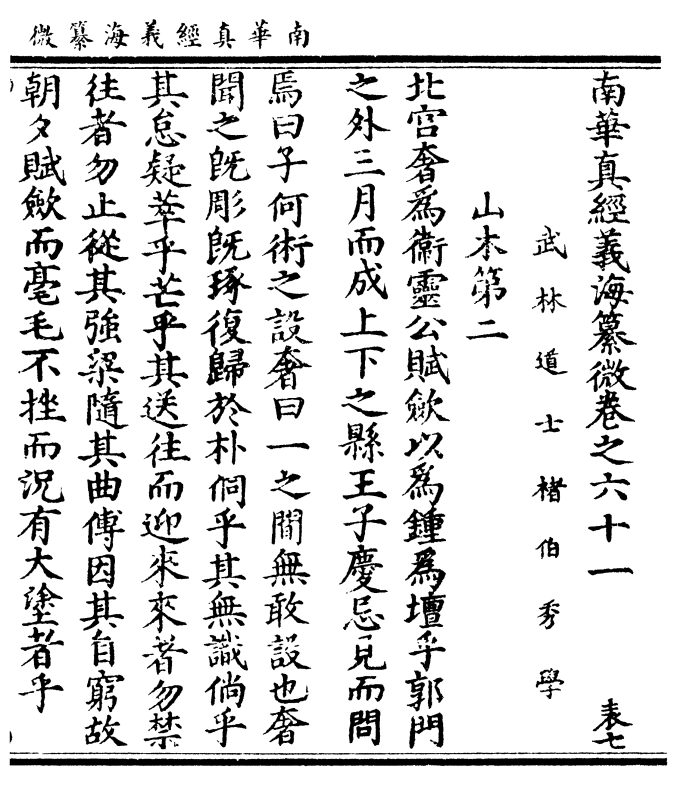 南華真經義海纂微
南華真經義海纂微卷之六十一 表七
武林道士褚伯秀學
山木第二
北宮奢爲衞靈公賦歛以爲鍾爲壇乎郭門
之外三月而成上下之縣王子慶忌見而問
焉曰子何術之設奢曰一之間無敢設也奢
聞之旣彫旣琢復歸於朴侗乎其無識倘乎
其怠疑萃乎芒乎其送往而迎來來者勿禁
往者勿止從其強梁隨其曲傅因其自窮故
朝夕賦歛而毫毛不挫而況有大塗者乎